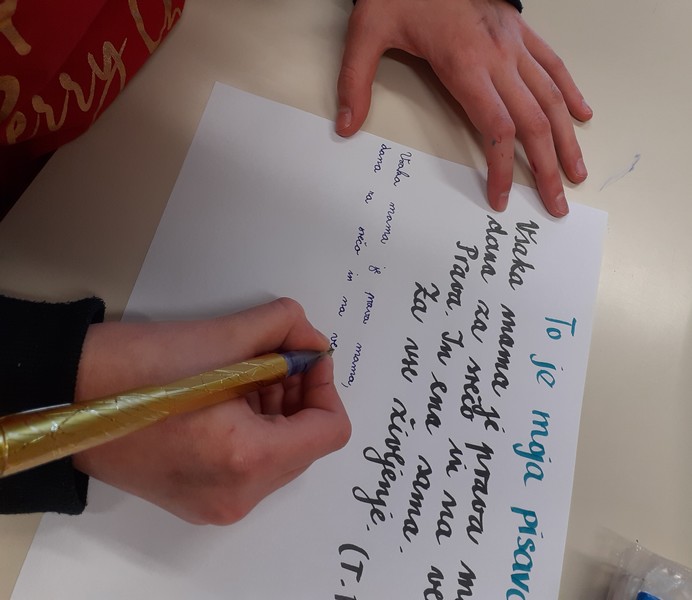 To je moja pisava
Vsaka mama je prava m
dana za srečo in na ve
Prava. In ena sama.
Za vse življenje.
(T.
Vsaka mama je prava mama,
dana za srečo in na ve